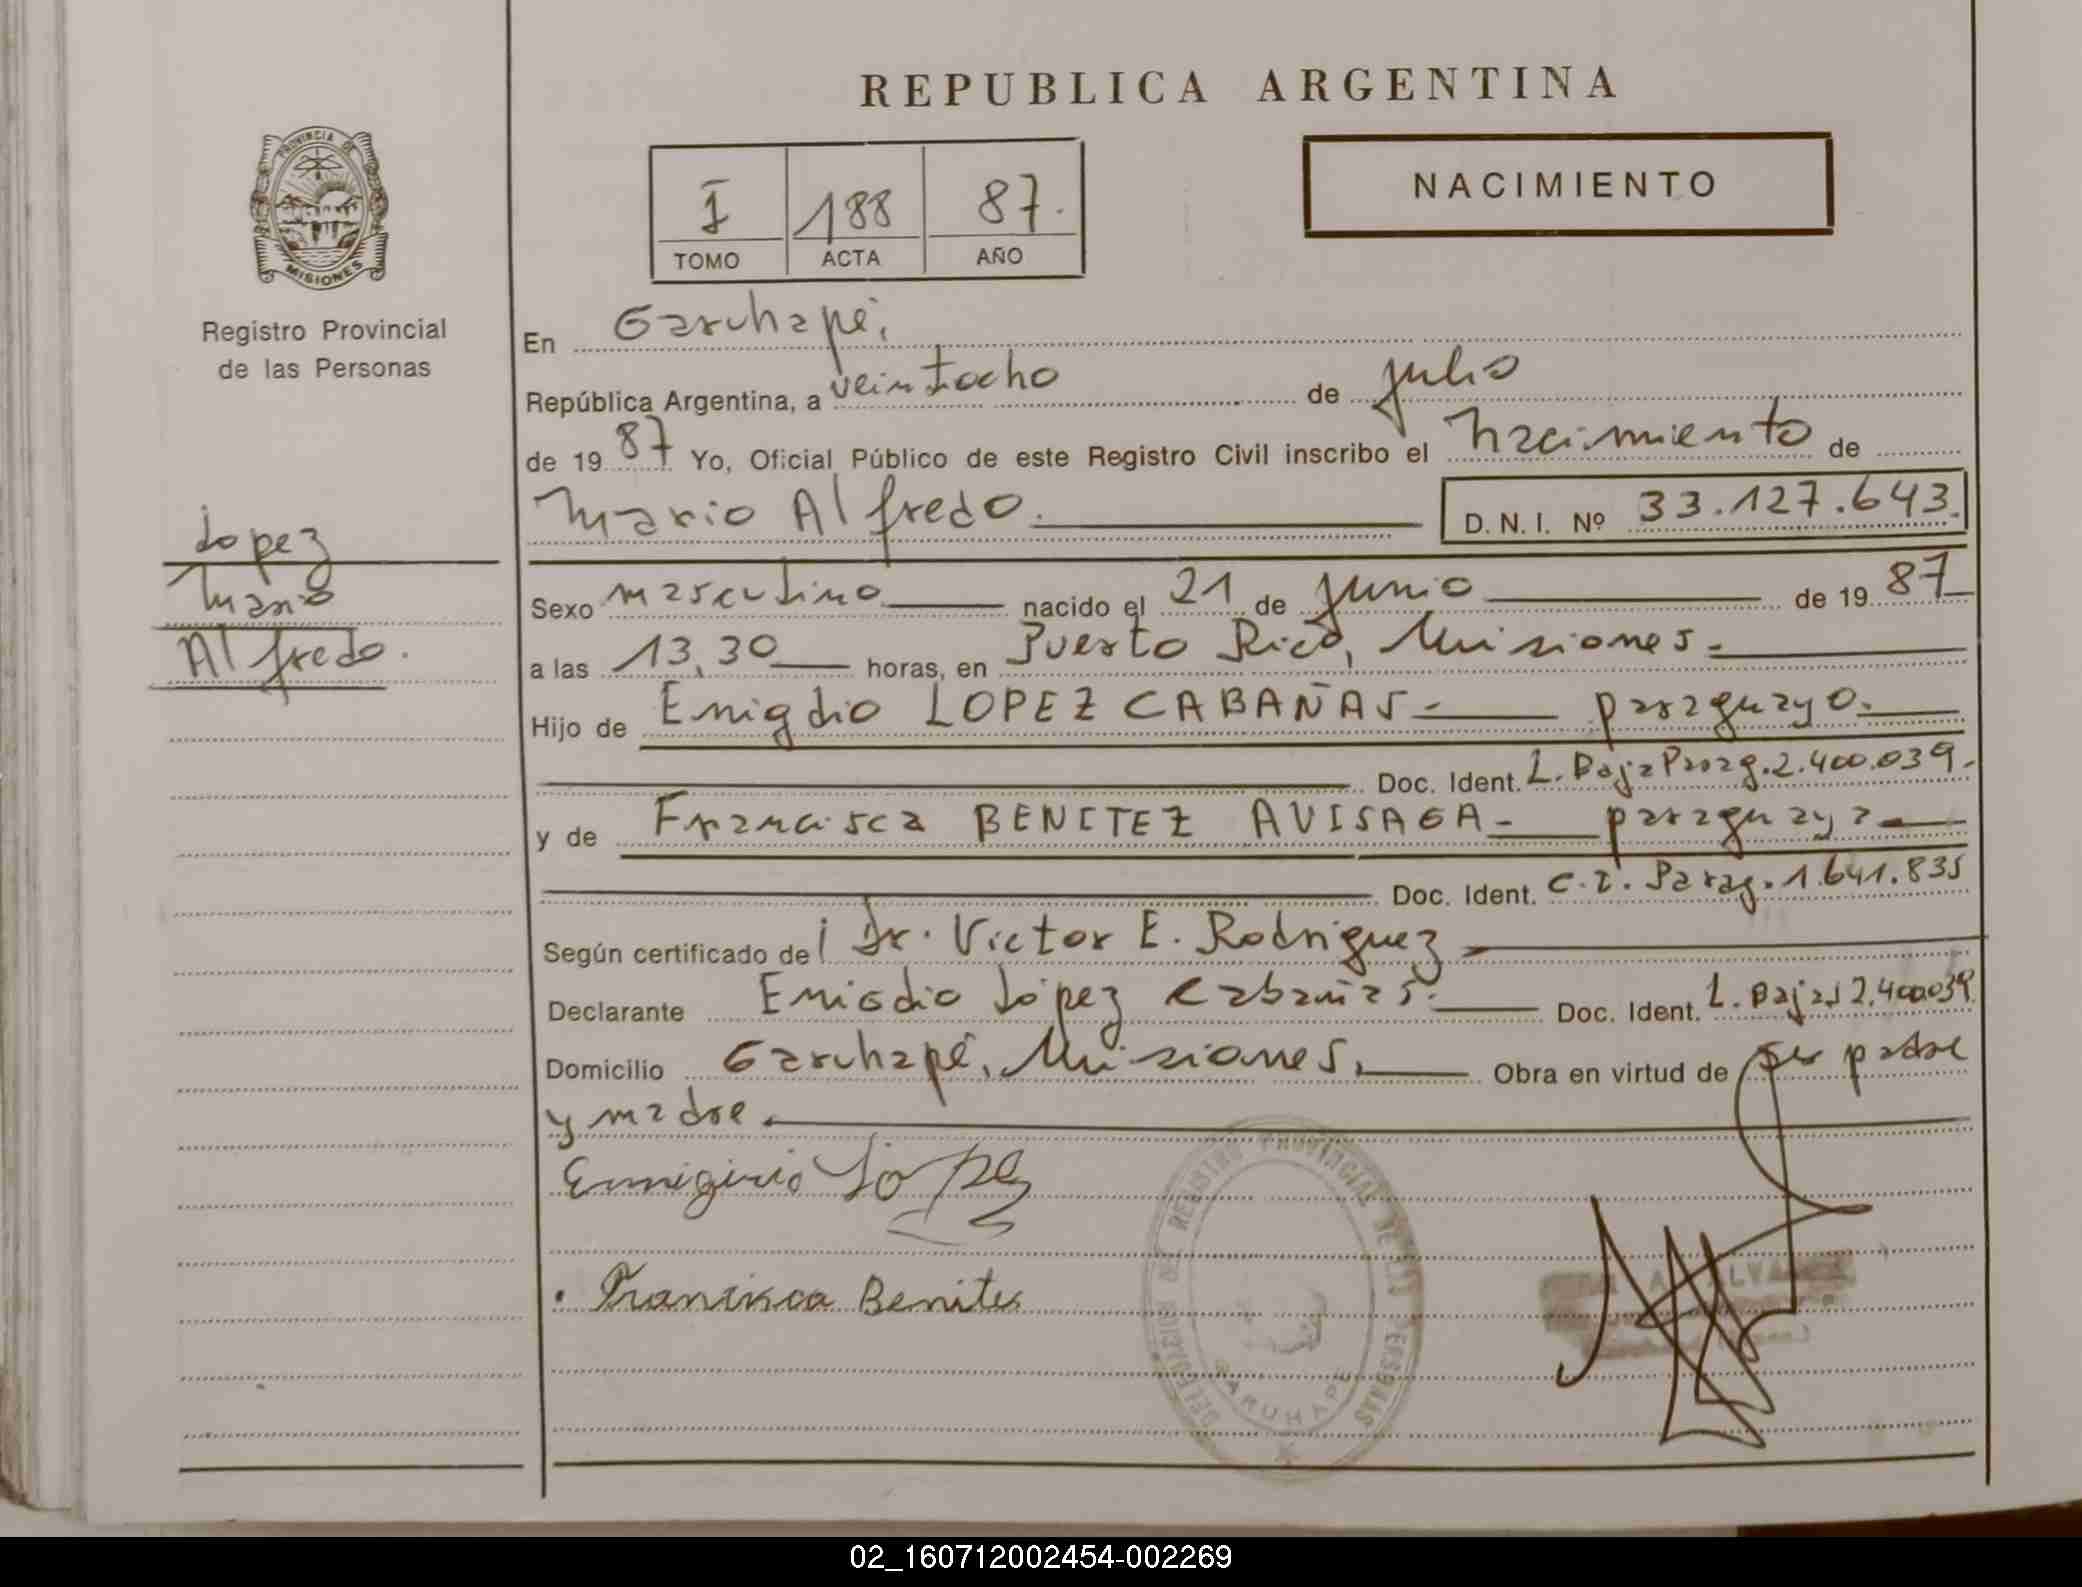 REPUBLICA ARGENTINA
PROVINCIA DE MISIONES
Registro Provincial
de las Personas
I 188 87.
TOMO ACTA AÑO
NACIMIENTO
En Garuhapé,
República Argentina, a veintiocho de julio
de 1987 Yo, Oficial Público de este Registro Civil inscribo el nacimiento de
Mario Alfredo. D. N. I. Nº 33.127.643.
Lopez
Mario
Alfredo.
Sexo masculino nacido el 21 de junio de 1987
a las 13,30 horas, en Puerto Rico, Misiones.-
Hijo de Emigdio LOPEZ CABAÑAS- paraguayo.
Doc. Ident. L. Baja Parag. 2.400.039.
y de Francisca BENITEZ AVISAGA- paraguaya
Doc. Ident. C.I. Parag. 1.641.835
Según certificado del Dr. Victor E. Rodriguez
Declarante Emigdio López Cabañas. Doc. Ident. L. Baja 2.400.039
Domicilio Garuhapé, Misiones. Obra en virtud de ser padre
y madre.
Emigirio Lopez
Francisca Benites
DELEGACION DEL REGISTRO PROVINCIAL DE LAS PERSONAS
GARUHAPE
02_160712002454-002269